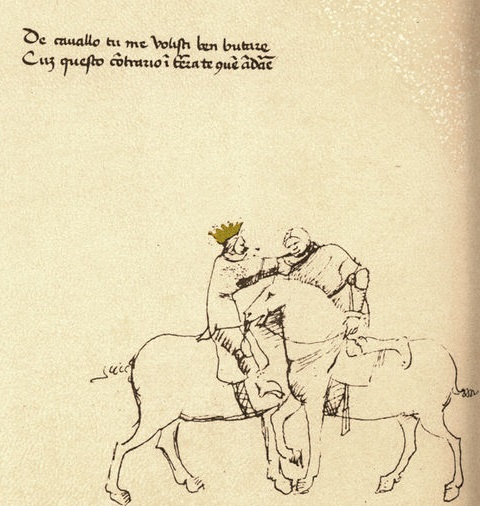 De cauallo tu me volisti ben butare
Cuz questo cōtrario ī tēra te 9uē ādāe